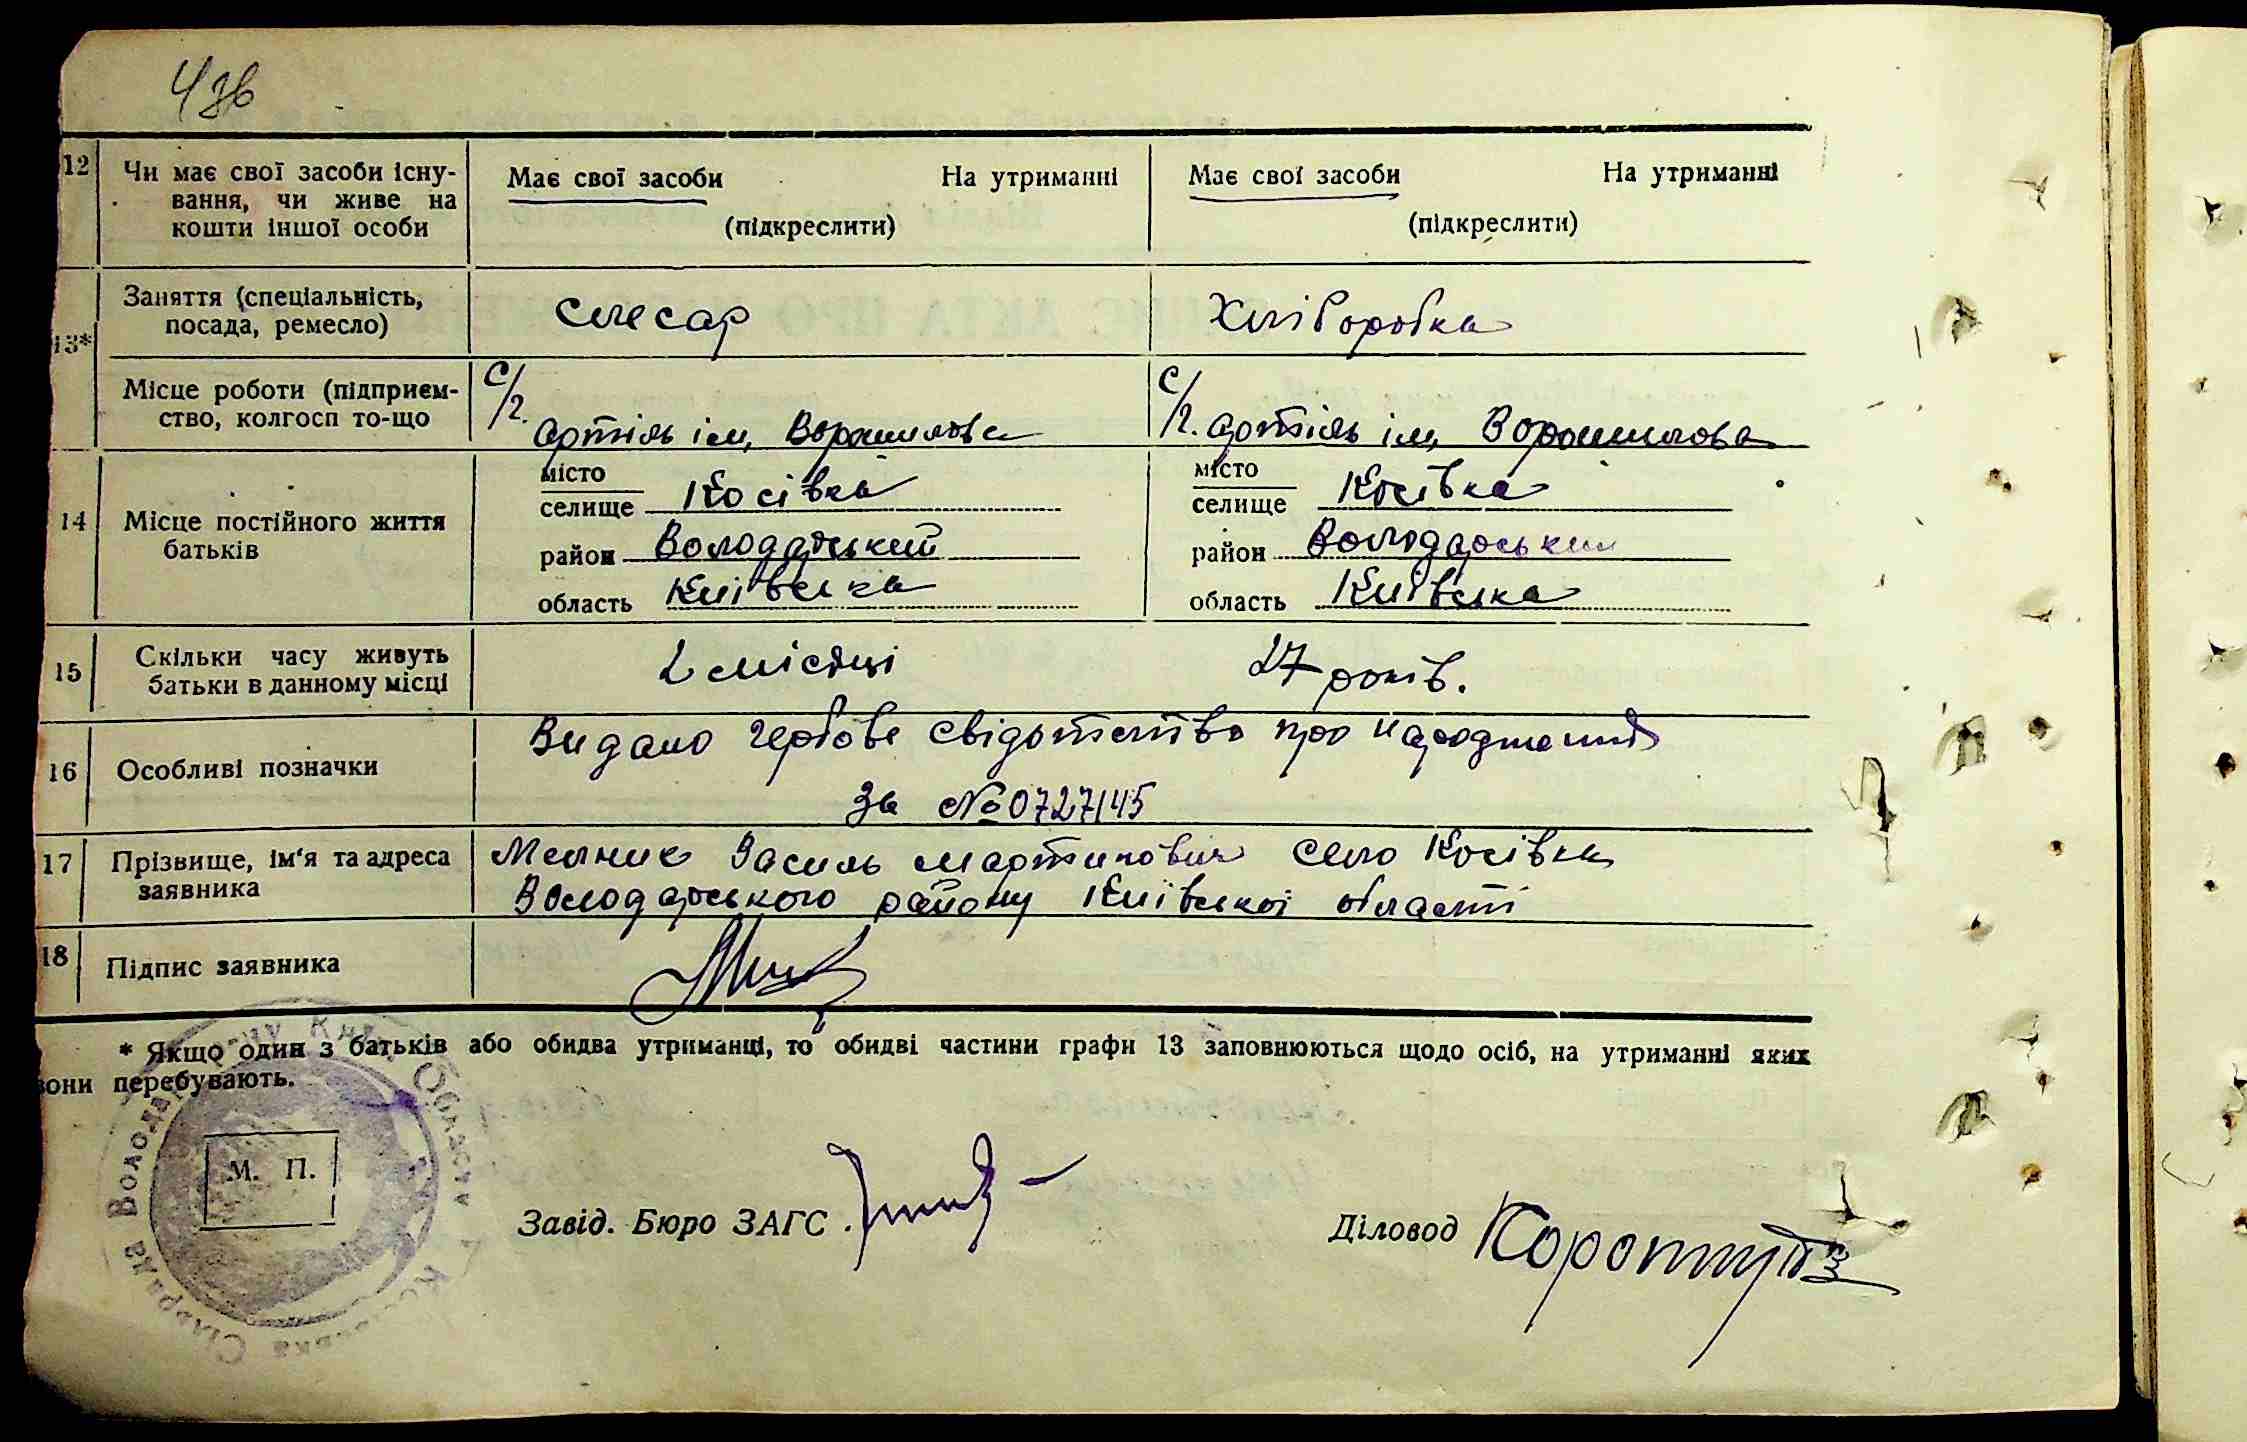 4 зв
12 Чи має свої засоби існу- Має свої засоби На утриманні Має свої засоби На утриманні
вання, чи живе на
кошти іншої особи (підкреслити) (підкреслити)
13* Заняття (спеціальність, слесар Хліборобка
посада, ремесло)
Місце роботи (підприєм- с/г. с/г.
ство, колгосп то-що артіль ім, Ворошилова артіль ім, Ворошилова
14 Місце постійного життя батьків
місто селище Косівка місто селище Косівка
район Володарський район Володарський
область Київська область Київська
15 Скільки часу живуть 2 місяці 27 років.
батьки в данному місці
16 Особливі позначки Видано гербове свідотство про народження
за №0727145
17 Прізвище, ім'я та адреса Мельник Василь Мартинович село Косівка
заявника Володарського району Київської області
18 Підпис заявника
* Якщо один з батьків або обидва утриманці, то обидві частини графи 13 заповнюються щодо осіб, на утриманні яких
вони перебувають.
М. П.
Завід. Бюро ЗАГС
Діловод